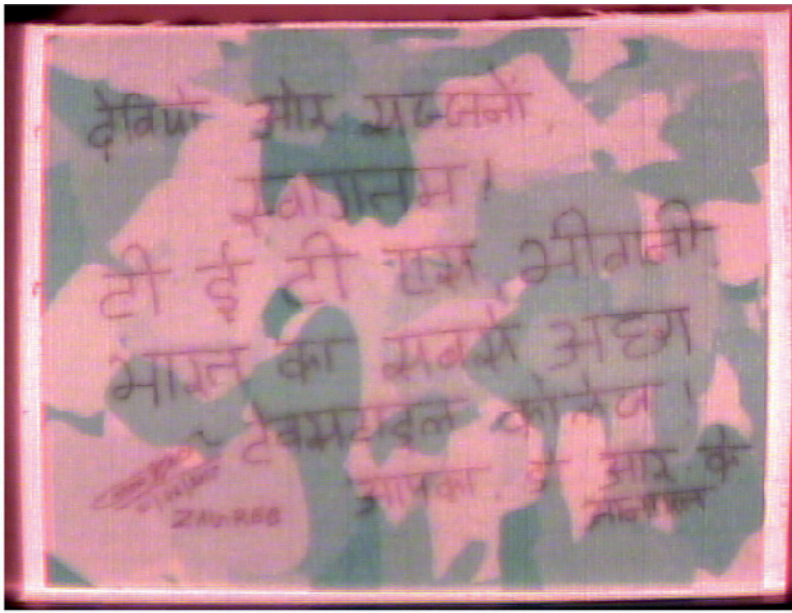 देवियो और सज्जनों,
स्वागतम !
टी ई टी एस भीवानी
भारत का सबसे अच्छा
टेक्सटाइल कोलेज !
आपका . ड आर. के
ZAGREB